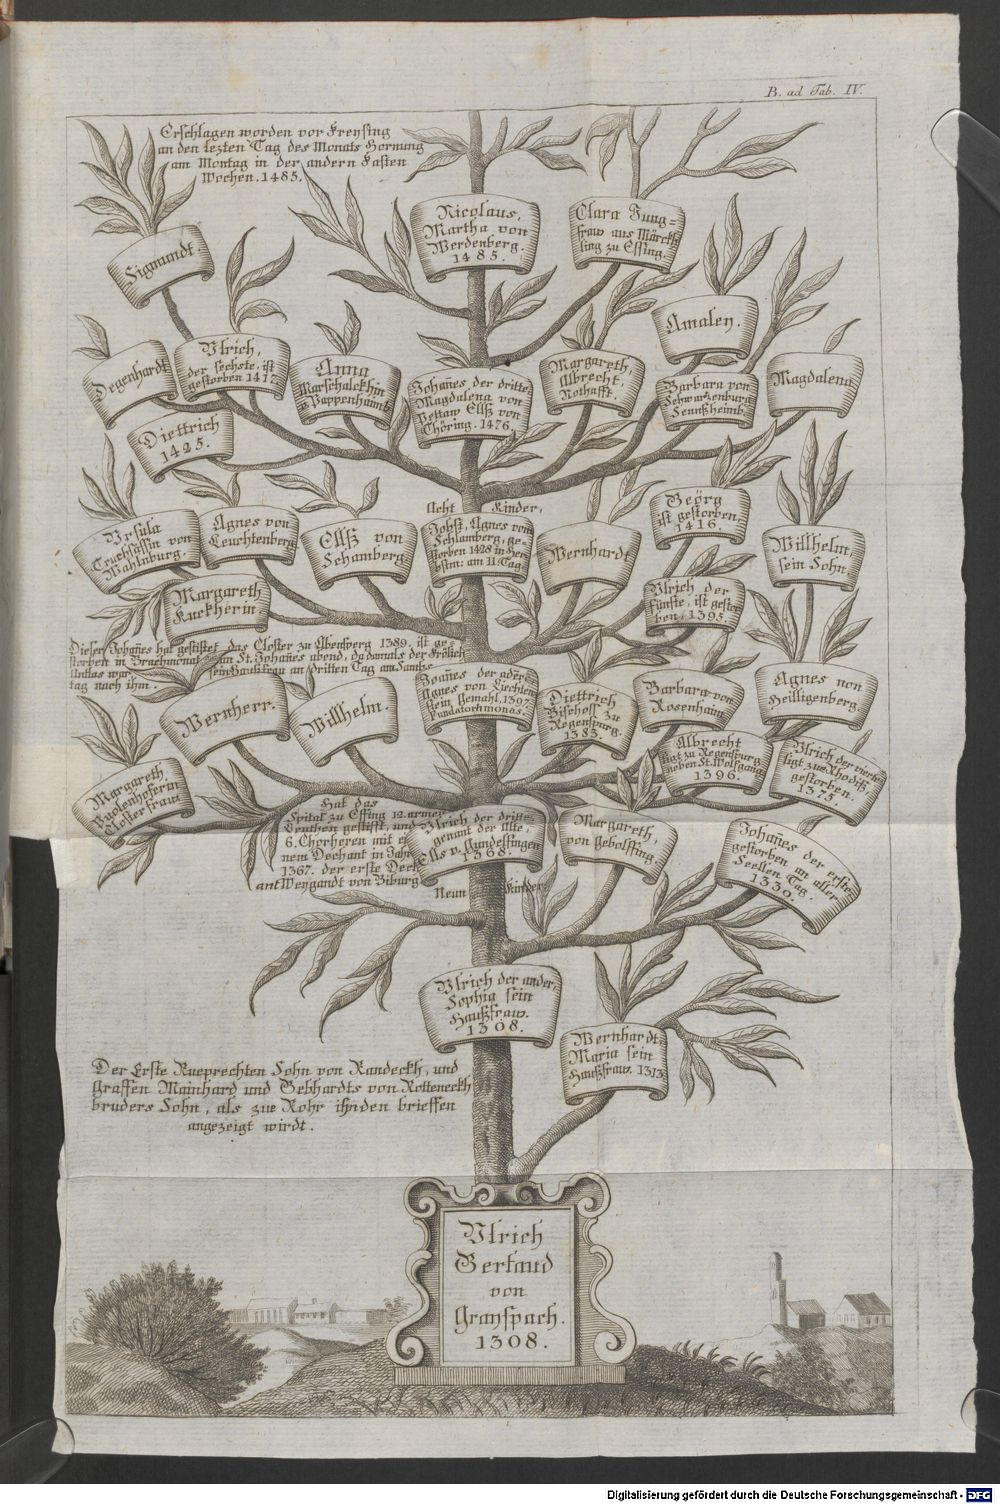 B. ad Tab. IV.
Erschlagen worden vor Freysing
an den lezten Tag des Monats Hornung
am Montag in der andern Fasten
Wochen. 1485.
Nicolaus,
Martha von
Werdenberg.
1485.
Clara Jung=
fraw aus Märckh
ling zu Essing.
Sigmundt.
Amaley.
Degenhardt
Vlrich,
der sechste, ist
gestorben 1417
Anna
Marschalckhin
v. Pappenhaimb
Johañes der dritte
Magdalena von
Pettaw Ellß von
Thöring. 1476.
Margareth,
Albrecht
Nothafft.
Barbara von
Schwarzenburg
Sennßheimb.
Magdalena
Diettrich
1425.
Acht Kinder,
Vrsula
Truchsässin von
Wahlnburg.
Agnes von
Leuchtenberg
Ellß von
Schamberg
Jobst, Agnes von
Schlamberg, ge-
storben 1428 in Her-
bstm: am 11. Tag
Wernhardt
Georg
ist gestorben
1416.
Willhelm
sein Sohn
Margareth
Kuckherin
Vlrich der
Fünfte, ist gestor
ben, 1395.
Dieser Johañes hat gestiftet das Closter zu Abensperg 1389. ist ge-
storben in Brachmonat an St. Johañes abend, da damals der Frölich
Antlas war, sein Haußfrau an dritten Tag am Sambs
tag nach ihm.
Wernherr.
Willhelm.
Joañes der ader
Agnes von Liechten
stein Gemahl, 1397
Fundator monas.
Diettrich
Bischoff zu
Regenspurg.
1383.
Barbara von
Rosenhaim
Agnes von
Heilligenberg.
Margareth,
Closterfraw
Albrecht
ligt zu Regenspurg
neben St. Wolfgang
1396.
Vlrich der vierte
ligt zue Rhodiß,
gestorben.
1375.
Hat das
Spital zu Essing 12. armer
Leuthen gestifft, und
6. Chorheren mit ei
nem Dechant in Jahr
1367. der erste Dech
ant Weygandt von Biburg
Vlrich der dritte
genant der Alte,
Ells v. Gundelfingen
1368.
Margareth,
von Gebolffing.
Johañes der erste
gestorben an aller
Seellen Tag.
1330.
Neun Kinder
Vlrich der ander
Sophia sein
Haußfraw.
1308.
Wernhardt
Maria sein
Haußfraw. 1313
Der Erste Rueprechten Sohn von Randeckh, und
Graffen Mainhard und Gebhardts von Rotteneckh
bruders Sohn, als zue Rohr ihnden brieffen
angezeigt wirdt.
Vlrich
Gertaud
von
Grayspach.
1308.
Digitalisierung gefördert durch die Deutsche Forschungsgemeinschaft - DFG